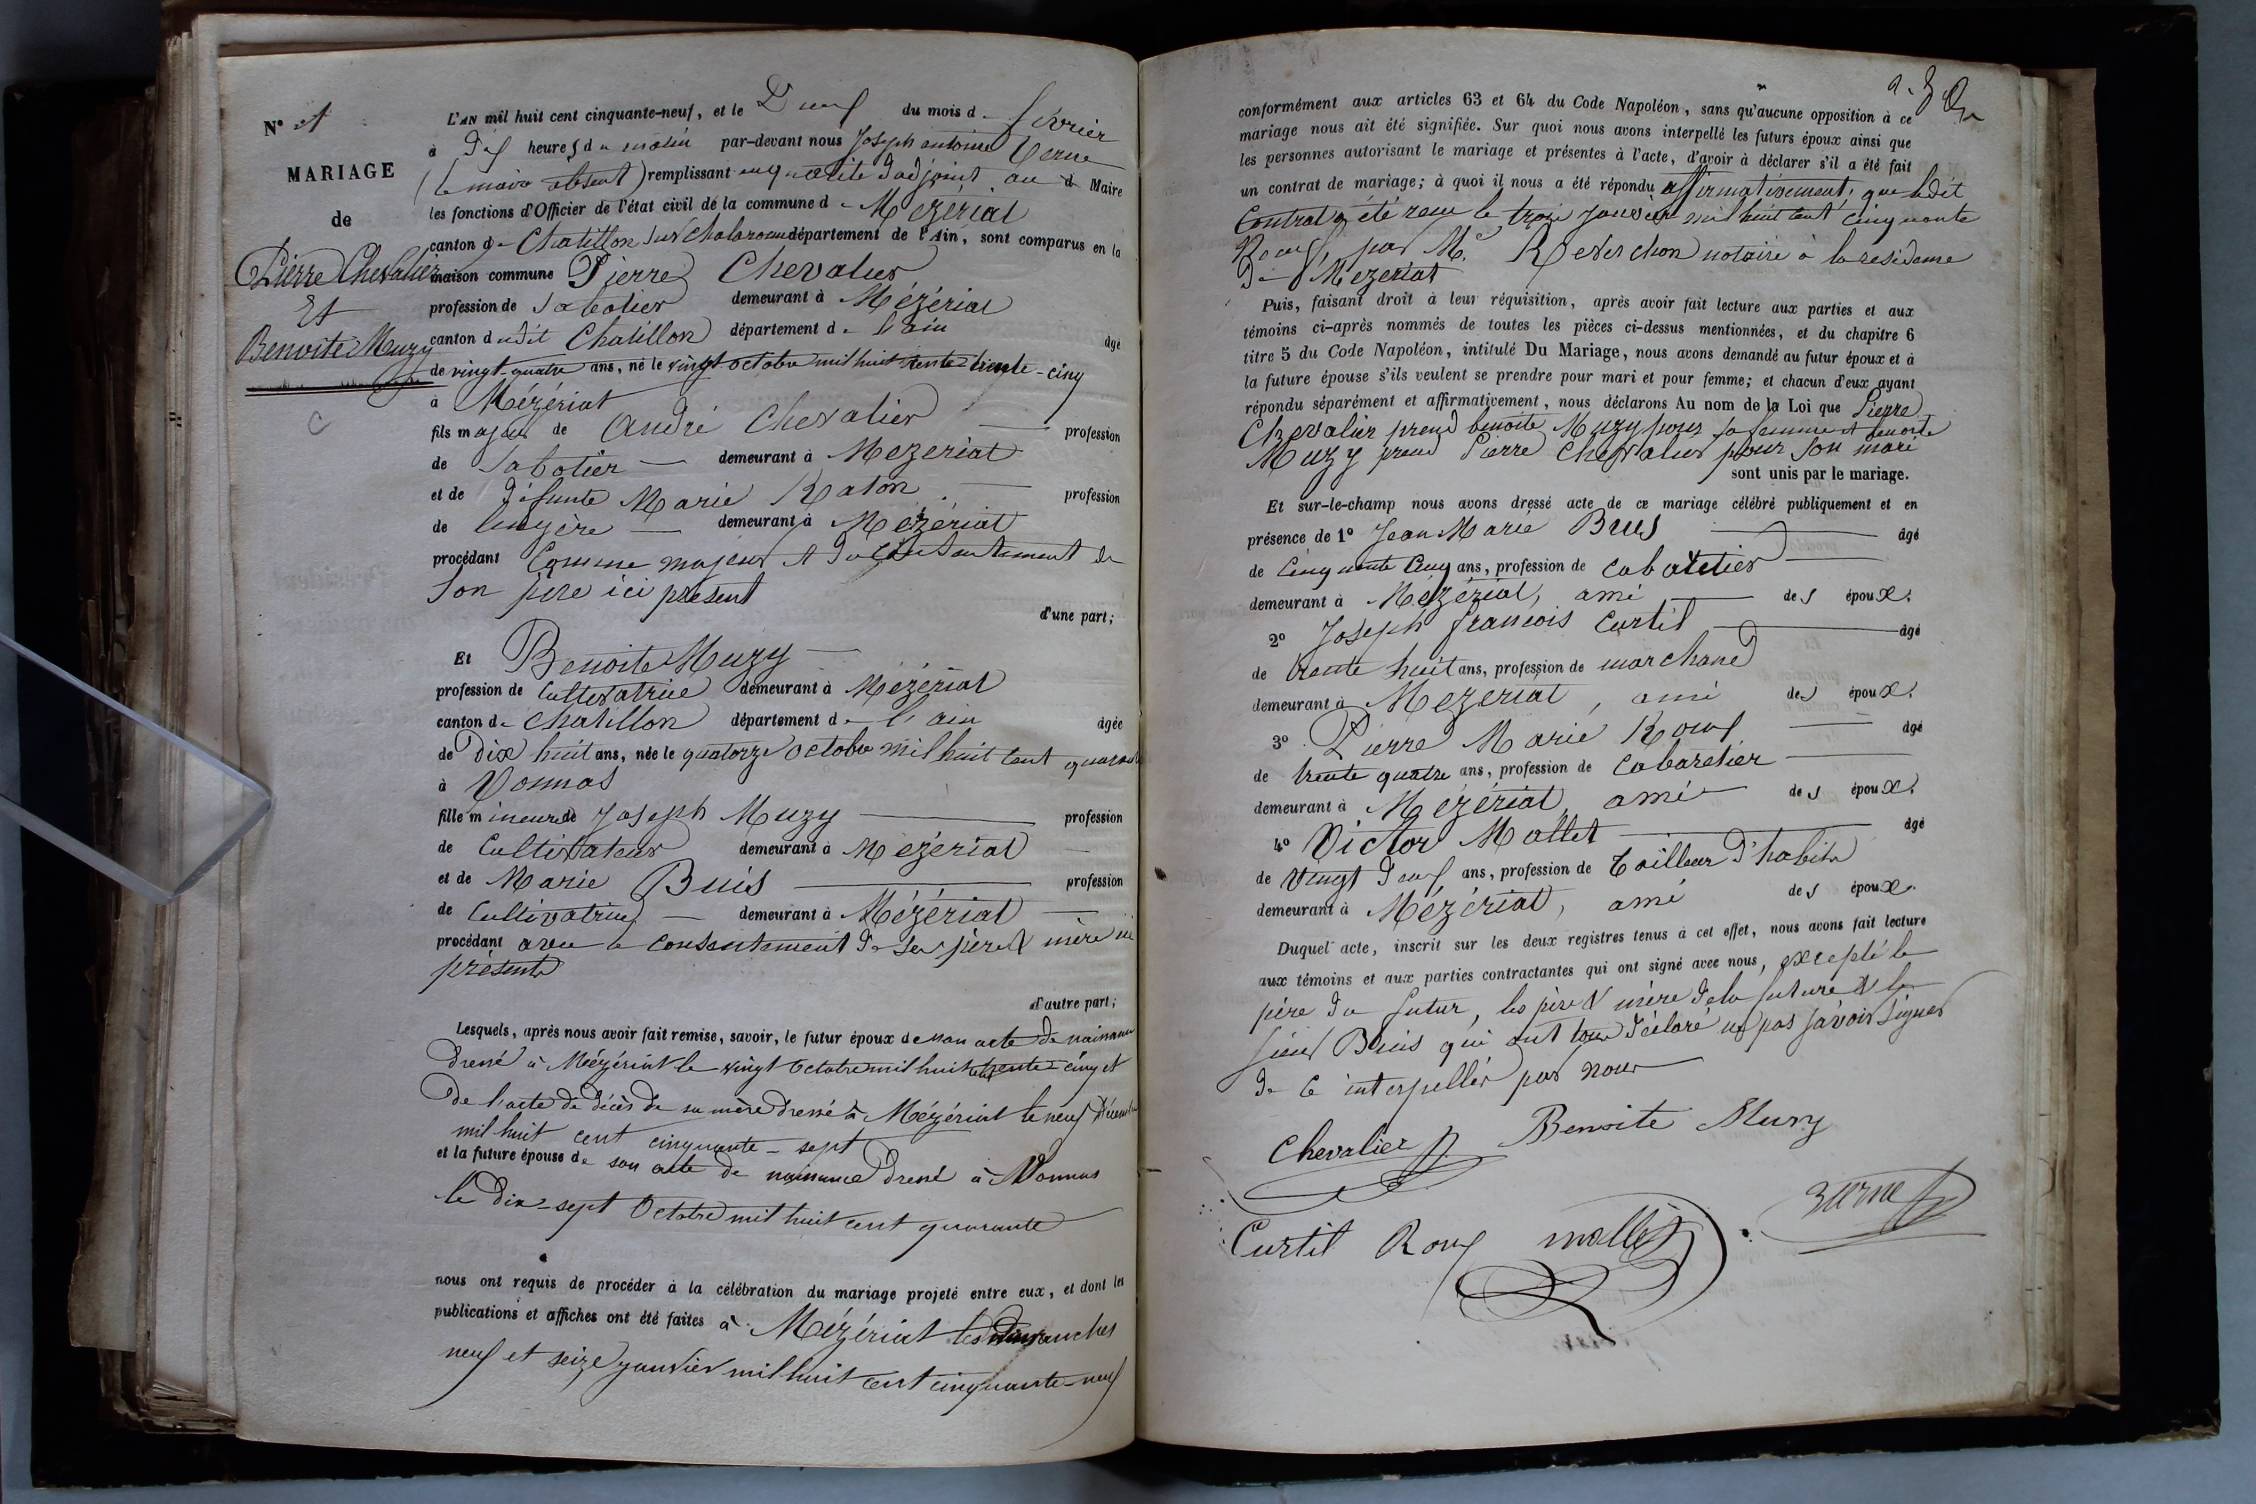 N° 1
MARIAGE
de
Pierre Chevalier
Et
Benoite Muzy
L'AN mil huit cent cinquante-neuf, et le Deux du mois de février
à dix heures du matin par-devant nous Joseph antoine Verne
(le maire absent) remplissant en qualité d'adjoint au d Maire
les fonctions d'Officier de l'état civil de la commune de Mézériat
canton de Chatillon sur Chalaronne département de l'Ain, sont comparus en la
maison commune Pierre Chevalier
profession de Sabotier demeurant à Mézériat
canton dudit Chatillon département de l'ain âgé
de vingt-quatre ans, né le vingt octobre mil huit cent trente-cinq
à Mézériat
fils majeur de André Chevalier profession
de Sabotier demeurant à Mezeriat
et de défunte Marie Raton profession
de lingère demeurant à Mézériat
procédant Comme majeur et du consentement de
son père ici présent
d'une part;
Et Benoite Muzy
profession de Cultivatrice demeurant à Mézériat
canton de Chatillon département de l'ain âgée
de Dix huit ans, née le quatorze octobre mil huit cent quarante
à Vonnas
fille mineure de Joseph Muzy profession
de Cultivateur demeurant à Mézériat
et de Marie Buis profession
de Cultivatrice demeurant à Mézériat
procédant avec le consentement de ses père et mère ici
présents
d'autre part;
Lesquels, après nous avoir fait remise, savoir, le futur époux de son acte de naissance
dressé à Mézériat le vingt octobre mil huit cent trente-cinq et
de l'acte de décès de sa mère dressé à Mézériat le neuf Décembre
mil huit cent cinquante-sept
et la future épouse de son acte de naissance dressé à Vonnas
le dix-sept Octobre mil huit cent quarante
nous ont requis de procéder à la célébration du mariage projeté entre eux, et dont les
publications et affiches ont été faites à Mézériat les dimanches
neuf et seize janvier mil huit cent cinquante-neuf
conformément aux articles 63 et 64 du Code Napoléon, sans qu'aucune opposition à ce
mariage nous ait été signifiée. Sur quoi nous avons interpellé les futurs époux ainsi que
les personnes autorisant le mariage et présentes à l'acte, d'avoir à déclarer s'il a été fait
un contrat de mariage; à quoi il nous a été répondu affirmativement, que ledit
Contrat a été reçu le trois janvier mil huit cent cinquante
Neuf, par Me. Reverchon notaire à la residence
de Mezeriat
Puis, faisant droit à leur réquisition, après avoir fait lecture aux parties et aux
témoins ci-après nommés de toutes les pièces ci-dessus mentionnées, et du chapitre 6
titre 5 du Code Napoléon, intitulé Du Mariage, nous avons demandé au futur époux et à
la future épouse s'ils veulent se prendre pour mari et pour femme; et chacun d'eux ayant
répondu séparément et affirmativement, nous déclarons Au nom de la Loi que Pierre
Chevalier prend benoite Muzy pour sa femme et benoite
Muzy prend Pierre Chevalier pour son mari
sont unis par le mariage.
Et sur-le-champ nous avons dressé acte de ce mariage célébré publiquement et en
présence de 1° Jean Marie Buis âgé
de Cinquante Cinq ans, profession de cabaretier
demeurant à Mézériat, ami des époux.
2° Joseph françois Curtil âgé
de trente huit ans, profession de marchand
demeurant à Mezeriat, ami des époux.
3° Pierre Marie Roux âgé
de trente quatre ans, profession de Cabaretier
demeurant à Mézériat, ami des époux.
4° Victor Mollet âgé
de Vingt deux ans, profession de tailleur d'habits
demeurant à Mézériat, ami des époux.
Duquel acte, inscrit sur les deux registres tenus à cet effet, nous avons fait lecture
aux témoins et aux parties contractantes qui ont signé avec nous, excepté le
père du futur, les père et mère de la future et le
sieur Buis qui ont tous déclaré ne pas savoir signer
de ce interpellés par nous
Chevalier p. Benoite Muzy
Verne
Curtil Roux mollet